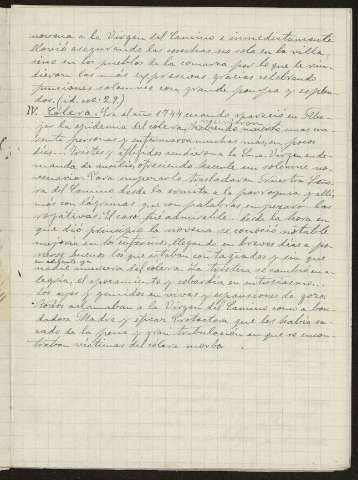 novena a la Virgen del Camino e inmediatamente
llovió asegurando las cosechas, no solo en la villa
sino en los pueblos de la comarca por lo que le rin-
dieron las más expresivas gracias celebrando
funciones solemnes con grande pompa y esplen-
dor. (id. vol. 29.)
IV. Cólera. Por el año 1744 cuando apareció en
la epidemia del cólera, muerto unas no-
venta personas y enfermaron muchas más, en pocos
días. Tristes y afligidos acudieron a la Sma. Virgen en de-
manda de ofreciendo hacerle un solemne no-
venario. Para empezarlo trasladaron Nuestra Seño-
ra del Camino desde la ermita a la parroquia y allí,
más con lágrimas que con palabras empezaron las
rogativas. El caso fué admirable: desde la hora en
que dió principio la novena se conoció notable
mejoría en los enfermos, llegando en breves días a po-
nerse buenos los que estaban contagiados y sin que
en adelante
nadie muriera del cólera. La tristeza se cambió en a-
legría, el apocamiento y cobardía en entusiasmo...
los ayes y gemidos en vivas y expansiones de gozo.
Todos aclamaban a la Virgen del Camino como a bon-
dadosa Madre y eficaz Protectora que les había sa-
cado de la pena y gran tribulación en que se encon-
traban víctimas del cólera morbo.